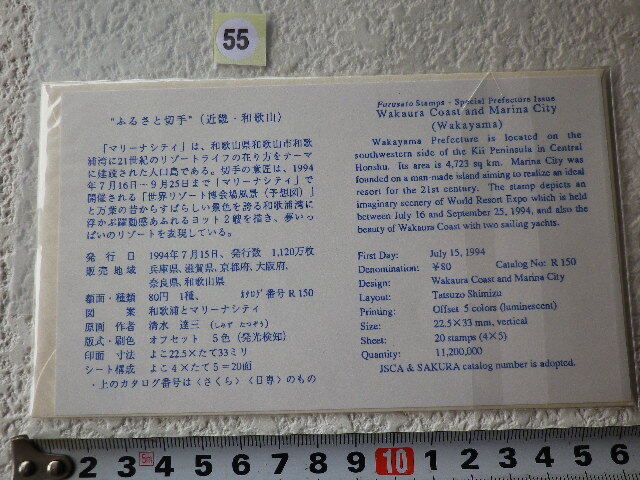 55
"ふるさと切手"(近畿・和歌山)
「マリーナシティ」は、和歌山県和歌山市和歌
浦湾に21世紀のリゾートライフの在り方をテーマ
に建設された人口島である。切手の意匠は、1994
年7月16日~9月25日まで「マリーナシティ」で
開催される『世界リゾート博会場風景(予想図)』
と万葉の昔からすばらしい景色を誇る和歌浦湾に
浮かぶ躍動感あふれるヨット2艘を描き、夢いっ
ぱいのリゾートを表現している。
発行日 1994年7月15日、発行数 1,120万枚
販売地域 兵庫県、滋賀県、京都府、大阪府、
奈良県、和歌山県
額面・種類 80円 1種、 カタログ番号 R 150
図案 和歌浦とマリーナシティ
原画作者 清水 達三 (しみず たつぞう)
版式・刷色 オフセット 5色(発光検知)
印面寸法 よこ22.5×たて33ミリ
シート構成 よこ4×たて5=20面
・上のカタログ番号は〈さくら〉〈日専〉のもの
Furusato Stamps - Special Prefecture Issue
Wakaura Coast and Marina City
(Wakayama)
Wakayama Prefecture is located on the
southwestern side of the Kii Peninsula in Central
Honshu. Its area is 4,723 sq km. Marina City was
founded on a man-made island aiming to realize an ideal
resort for the 21st century. The stamp depicts an
imaginary scenery of World Resort Expo which is held
between July 16 and September 25, 1994, and also the
beauty of Wakaura Coast with two sailing yachts.
First Day: July 15, 1994
Denomination: ¥80 Catalog No: R 150
Design: Wakaura Coast and Marina City
Layout: Tatsuzo Shimizu
Printing: Offset 5 colors (luminescent)
Size: 22.5×33 mm, vertical
Sheet: 20 stamps (4×5)
Quantity: 11,200,000
JSCA & SAKURA catalog number is adopted.
2 3 5m 4 5 6 7 8 9 10 1 2 3 4 5 6